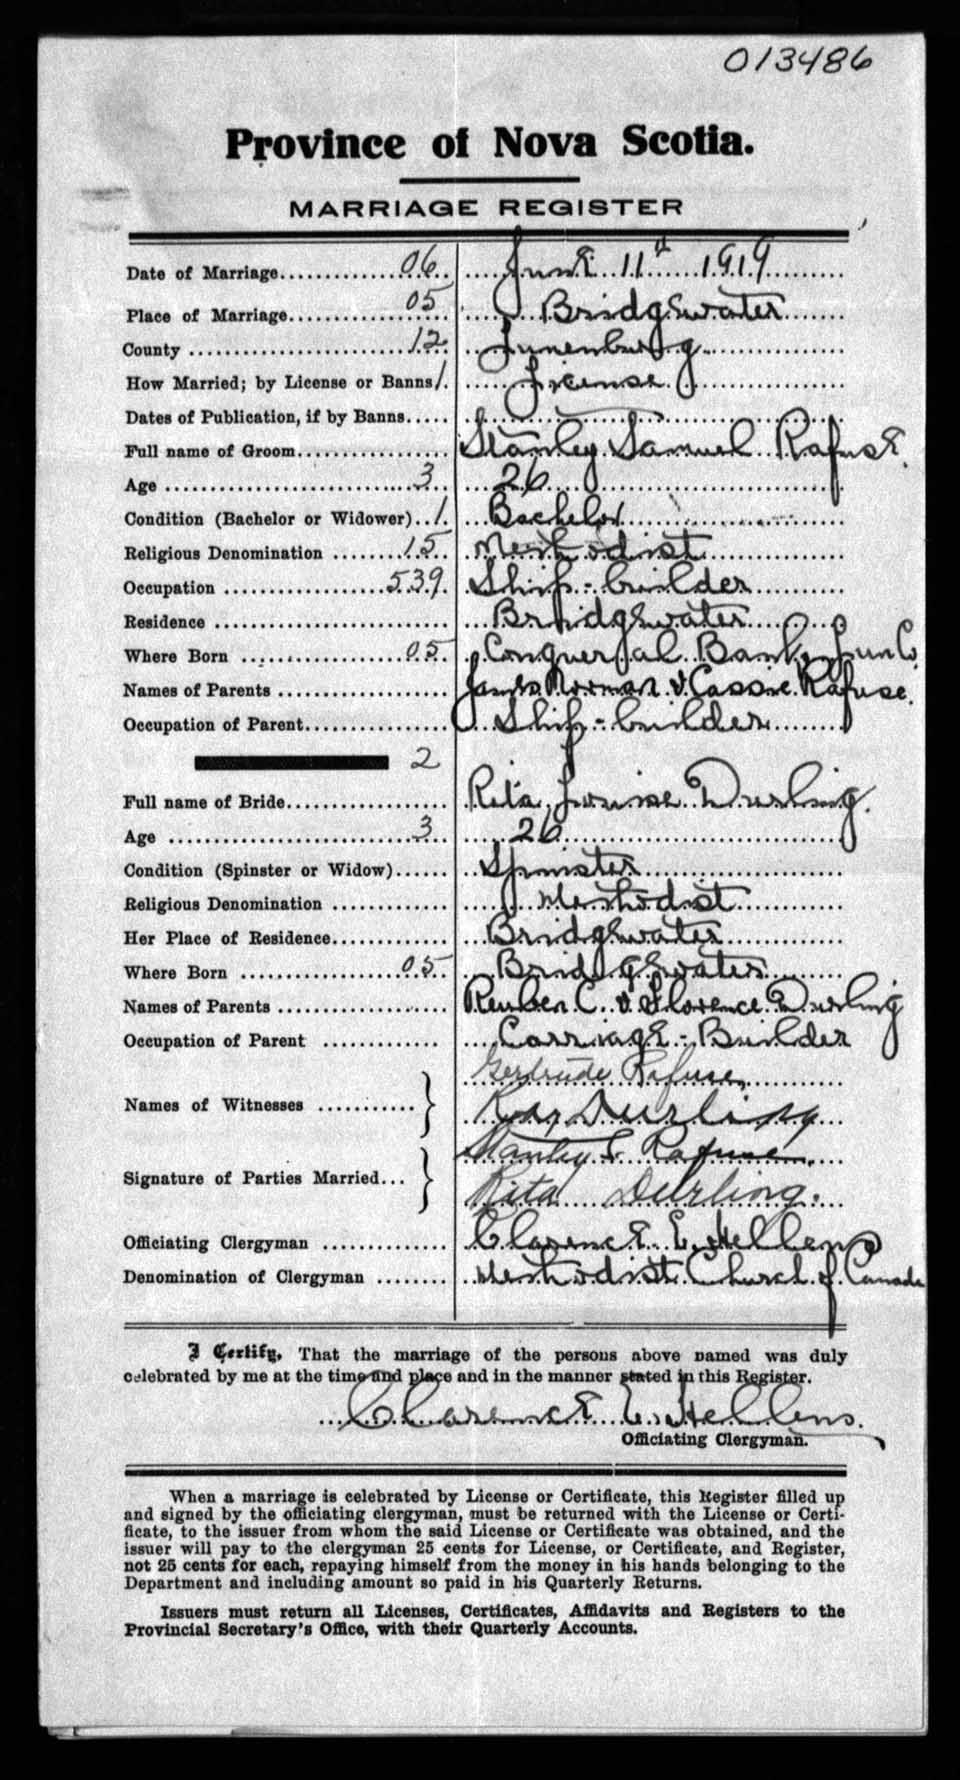 013486
Province of Nova Scotia.
MARRIAGE REGISTER
Date of Marriage 06 June 11th 1919
Place of Marriage 05 Bridgewater
County 12 Lunenburg
How Married; by License or Banns 1 License
Dates of Publication, if by Banns
Full name of Groom Stanley Samuel Rafuse
Age 3 26
Condition (Bachelor or Widower) 1 Bachelor
Religious Denomination 15 Methodist
Occupation 539 Ship-builder
Residence Bridgewater
Where Born 05 Conquerfal Bank, Lun Co.
Names of Parents James Norman & Cassie Rafuse.
Occupation of Parent Ship-builder
2
Full name of Bride Rita Louise Durling.
Age 3 26
Condition (Spinster or Widow) Spinster
Religious Denomination Methodist
Her Place of Residence Bridgewater
Where Born 05 Bridgewater
Names of Parents Reuben C. & Florence Durling
Occupation of Parent Carriage-Builder
Gertrude Rafuse
Names of Witnesses Roy Durling
Stanley S Rafuse
Signature of Parties Married Rita Durling.
Officiating Clergyman Clarence E. Hellens
Denomination of Clergyman Methodist Church of Canada
I Certify, That the marriage of the persons above named was duly
celebrated by me at the time and place and in the manner stated in this Register.
Clarence E. Hellens.
Officiating Clergyman.
When a marriage is celebrated by License or Certificate, this Register filled up
and signed by the officiating clergyman, must be returned with the License or Certi-
ficate, to the issuer from whom the said License or Certificate was obtained, and the
issuer will pay to the clergyman 25 cents for License, or Certificate, and Register,
not 25 cents for each, repaying himself from the money in his hands belonging to the
Department and including amount so paid in his Quarterly Returns.
Issuers must return all Licenses, Certificates, Affidavits and Registers to the
Provincial Secretary's Office, with their Quarterly Accounts.